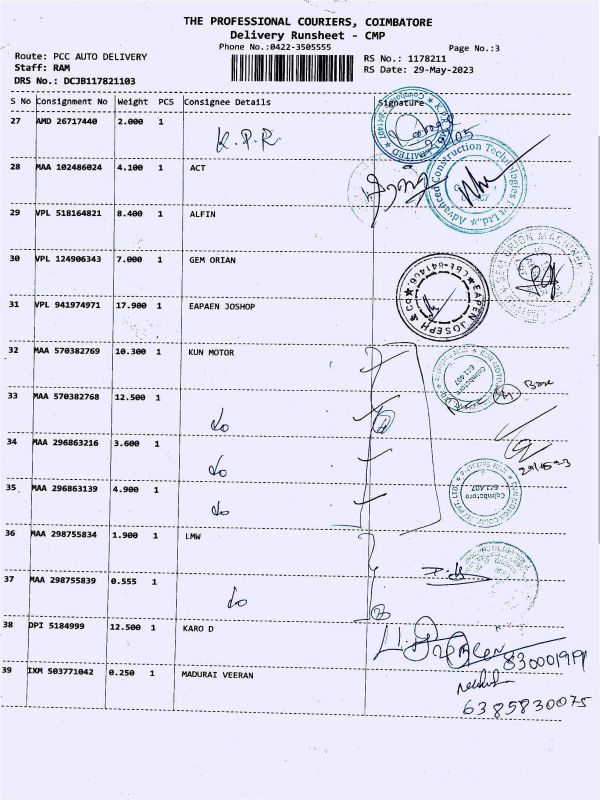 THE PROFESSIONAL COURIERS, COIMBATORE
Delivery Runsheet - CMP
Phone No.:0422-3505555
Page No.:3
Route: PCC AUTO DELIVERY
Staff: RAM
DRS No.: DCJB117821103
RS No.: 1178211
RS Date: 29-May-2023
S No Consignment No Weight PCS Consignee Details Signature
27 AMD 26717440 2.000 1 K.P.R.
28 MAA 102486024 4.100 1 ACT
Advanced Construction Technologies Pvt.Ltd.,
29 VPL 518164821 8.400 1 ALFIN
30 VPL 124906343 7.000 1 GEM ORIAN
EAPEN JOSEPH & CO. CBE-641406
31 VPL 941974971 17.900 1 EAPAEN JOSHOP
32 MAA 570382769 10.300 1 KUN MOTOR
Coimbatore 641 407
33 MAA 570382768 12.500 1 do
34 MAA 296863216 3.600 1 do
35 MAA 296863139 4.900 1 do
Coimbatore 641 407
36 MAA 298755834 1.900 1 LMW
37 MAA 298755839 0.555 1 do
38 DPI 5184999 12.500 1 KARO D
39 IXM 503771042 0.250 1 MADURAI VEERAN
6385830075